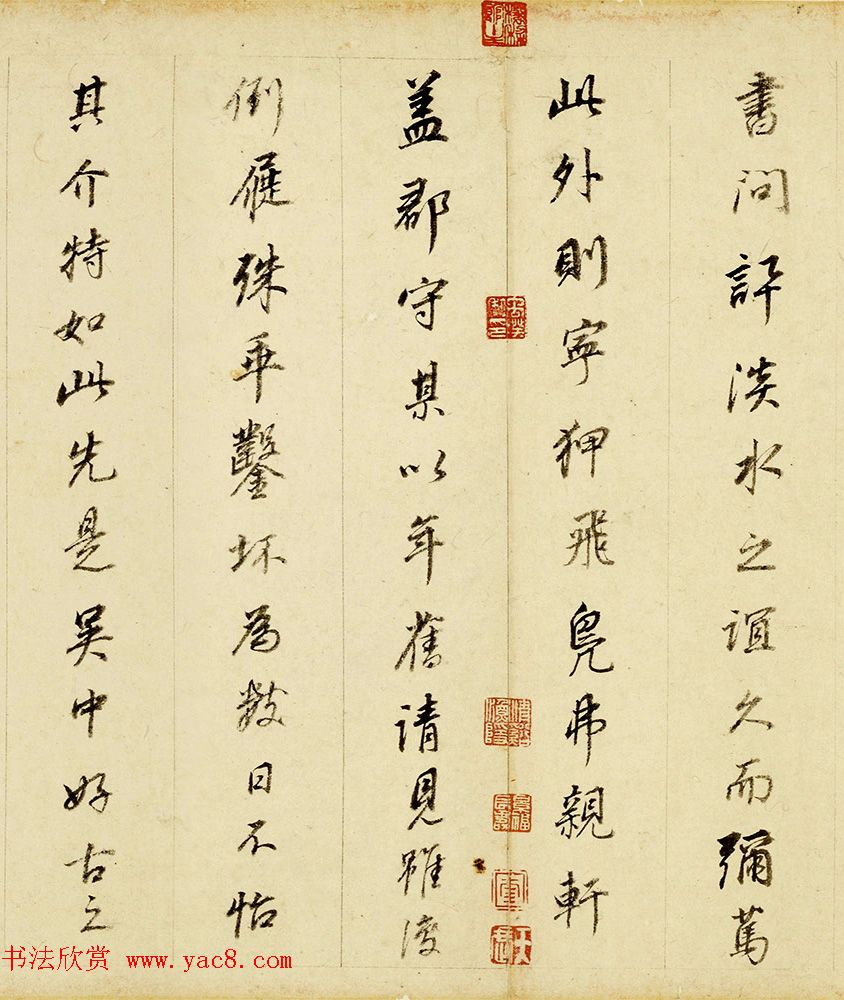 書問淡水之誼久而彌篤
此外則寧狎飛鳧弗親軒
盖郡守某以年舊請見雖復
倒屣殊乖鑿坏為數日不怡
其介特如此先是吳中好古之
书法欣赏 www.yac8.com